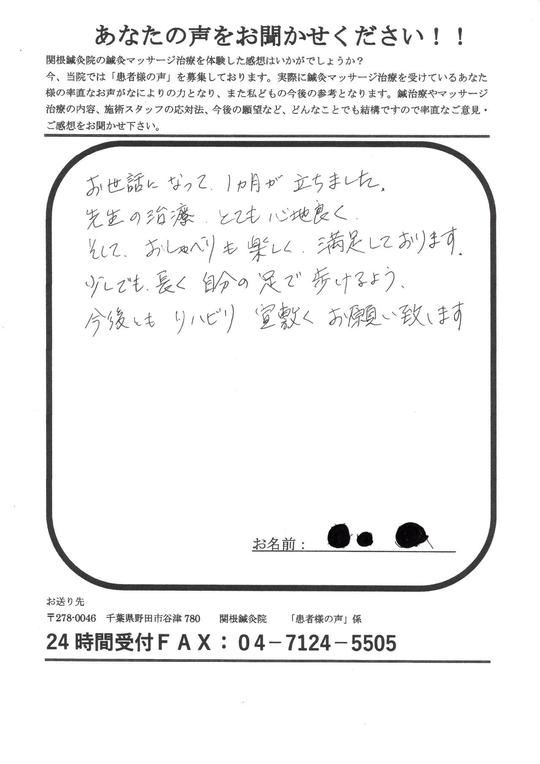 あなたの声をお聞かせください！！
関根鍼灸院の鍼灸マッサージ治療を体験した感想はいかがでしょうか？
今、当院では「患者様の声」を募集しております。実際に鍼灸マッサージ治療を受けているあなた
様の率直なお声がなによりの力となり、また私どもの今後の参考となります。鍼治療やマッサージ
治療の内容、施術スタッフの応対法、今後の願望など、どんなことでも結構ですので率直なご意見・
ご感想をお聞かせ下さい。
お世話になって、1ヵ月が立ちました。
先生の治療、とても心地良く、
そして、おしゃべりも楽しく、満足しております。
少しでも、長く自分の足で歩けるよう、
今後ともリハビリ宜敷くお願い致します
お名前：
お送り先
〒278-0046 千葉県野田市谷津780 関根鍼灸院 「患者様の声」係
24時間受付ＦＡＸ：０４－7124－5505